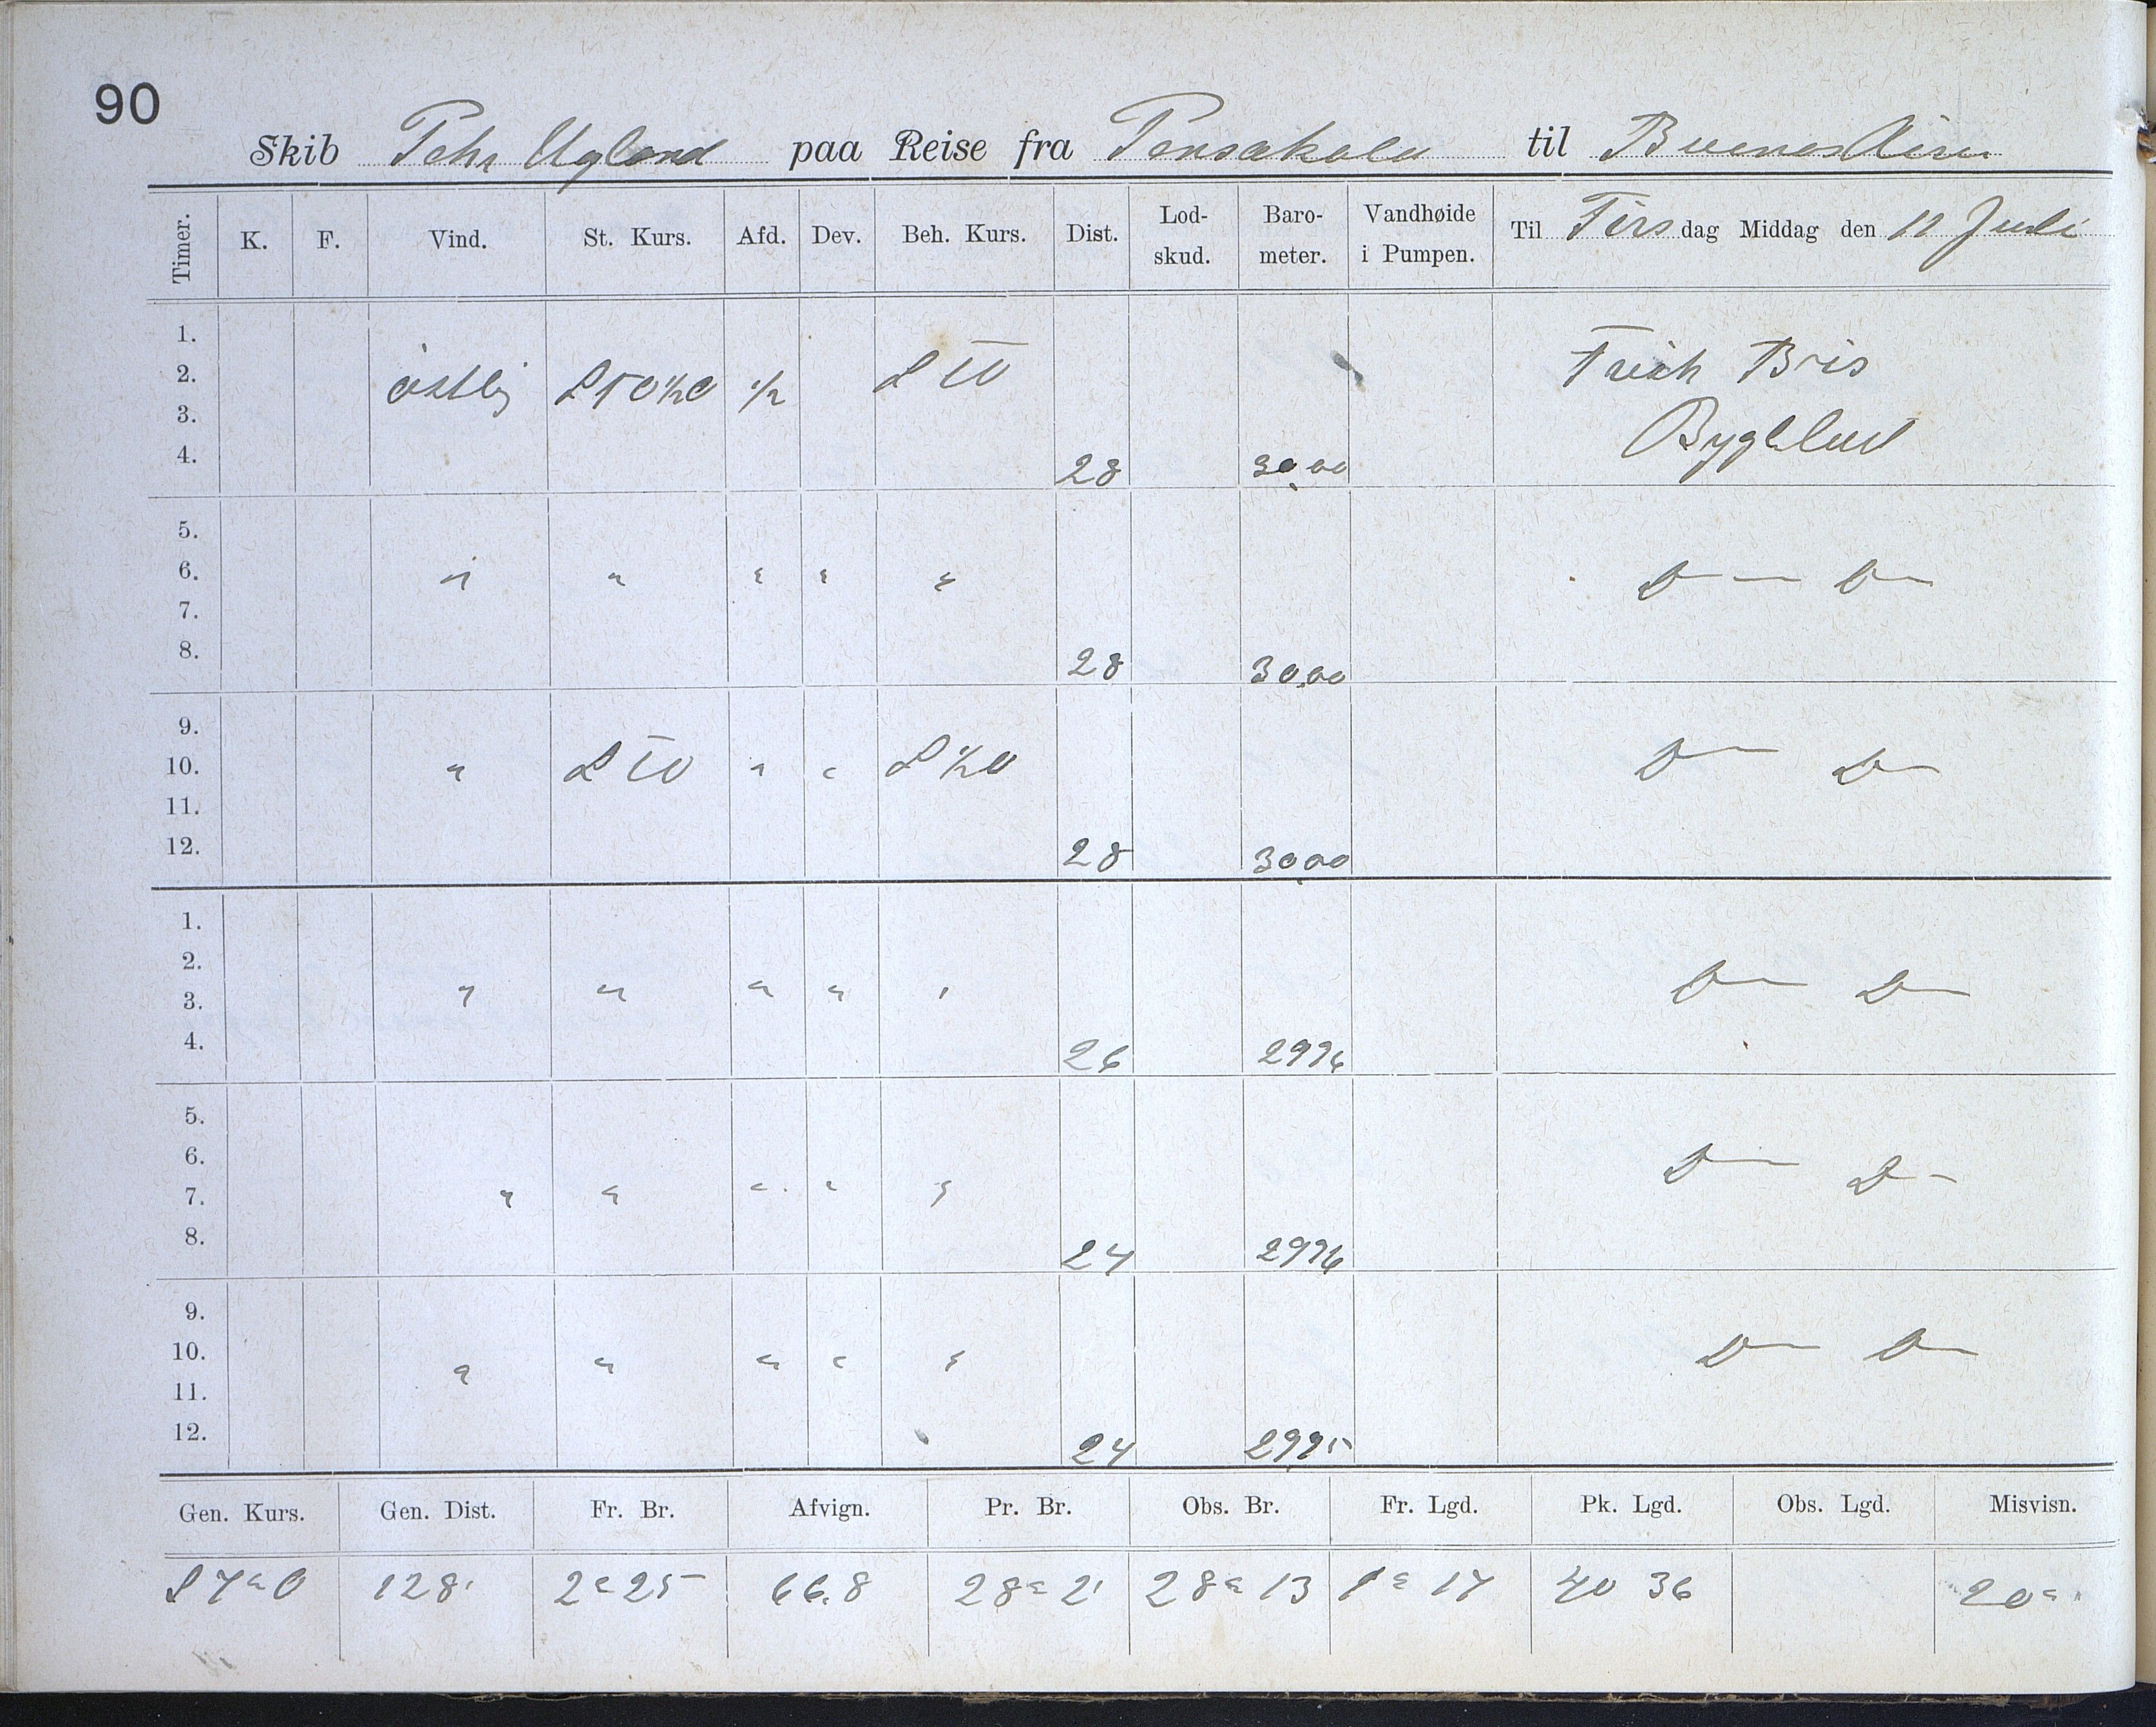 90
Skib Pehr Ugland paa Reise fra Pensakola til Buenos Aires
Timer. K. F. Vind. St. Kurs. Afd. Dev. Beh. Kurs. Dist. Lod-skud. Baro-meter. Vandhøide i Pumpen. Til Tirsdag Middag den 11 Juli
1.
2. östlig ½ Frisk Bris
3.
4. 28 30,00
5.
6. " " " " " D— — D—
7.
8. 28 30,00
9.
10. " StO " " S½O D— D—
11.
12. 28 30,00
1.
2.
3. " " " " " D— D—
4. 26 2996
5.
6. D— D—
7. " " " " "
8. 24 2996
9.
10. " " " " " D— D—
11.
12. 24 2995
Gen. Kurs. Gen. Dist. Fr. Br. Afvign. Pr. Br. Obs. Br. Fr. Lgd. Pk. Lgd. Obs. Lgd. Misvisn.
128' 2° 25 66,8 28° 2' 28° 13 1° 17 40 36 20°